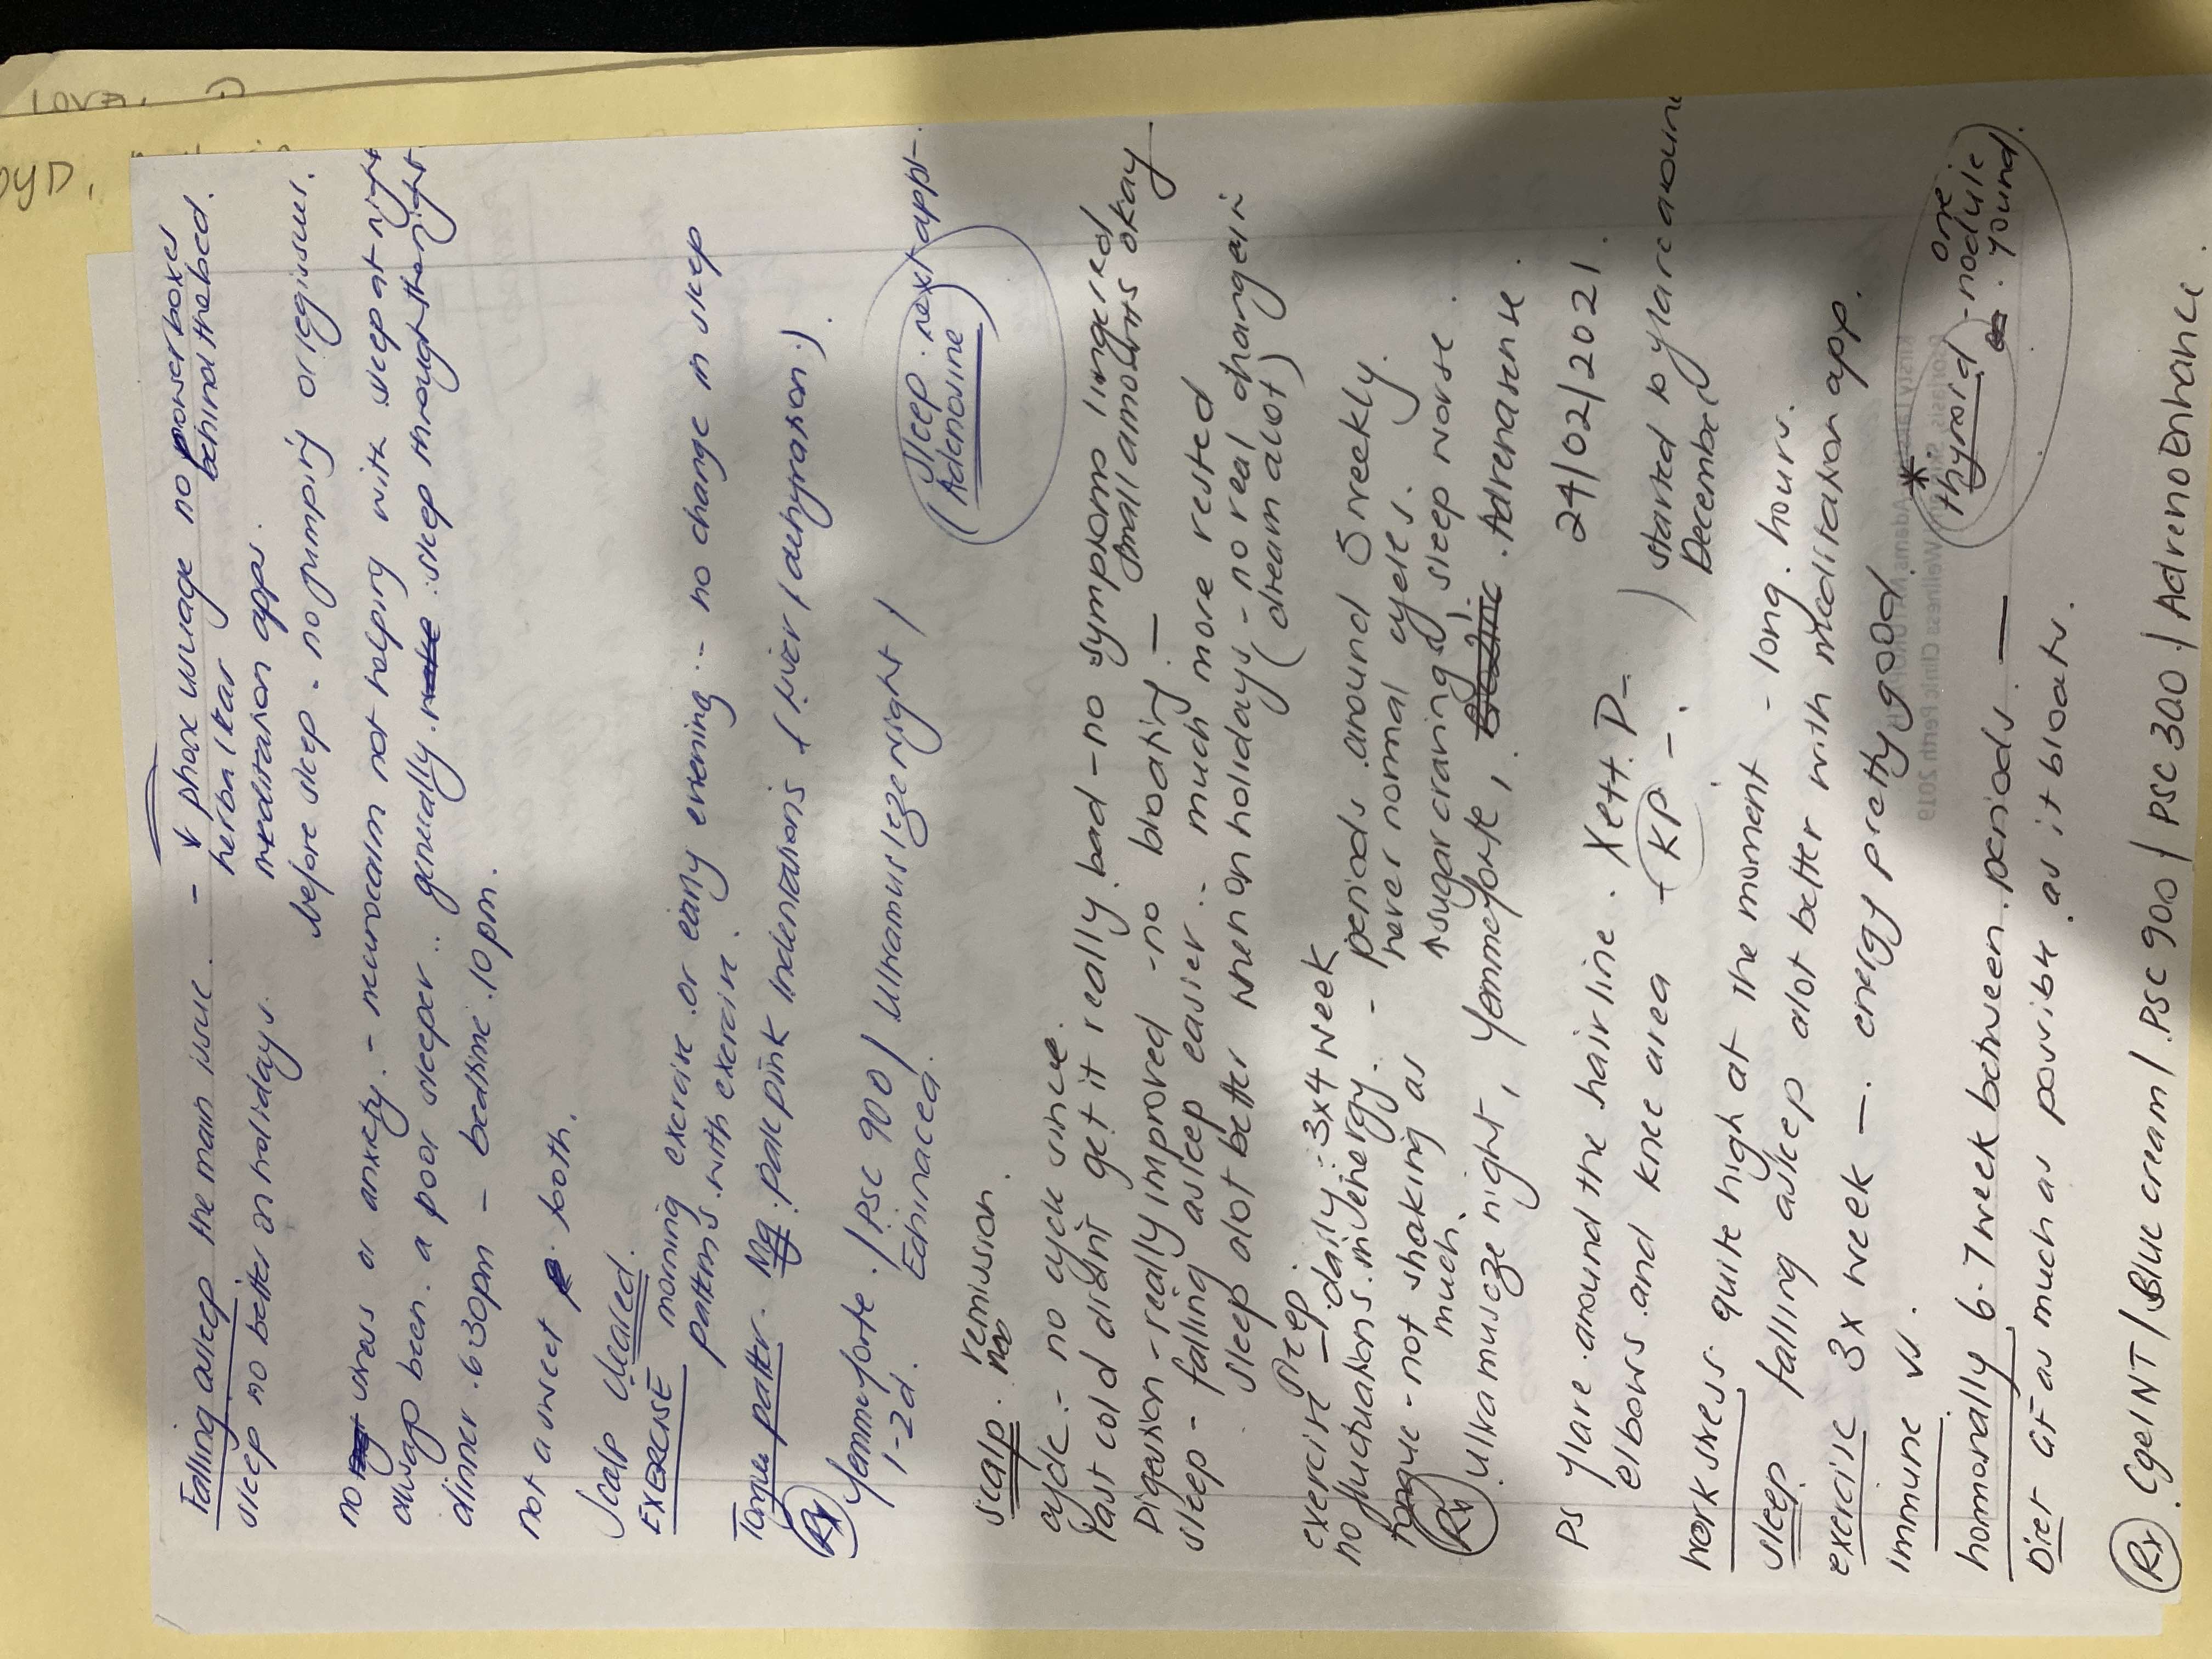 Falling asleep the main issue. - ↓ phone usage no power boxes
behind the bed.
sleep no better on holidays. herbal teas
meditation apps.
before sleep - no jumping or leg issues.
no stress or anxiety. - neurocalm not helping with sleep at night
always been a poor sleeper .. generally. sleep through the night
dinner 6:30pm - bedtime 10pm.
not a sweet tooth.
Scalp cleared.
EXERCISE morning exercise or early evening - no change in sleep
patterns with exercise.
Tongue patter. pale pink indentations (liver / dehydration.)
Rx Yemmeforte / PSC 900 / Ultramuscleze night /
1-2d. Echinacea.
(sleep next appt.
Adenosine)
scalp. remission.
cycle - no cycle since.
last cold didn't get it really bad - no symptoms lingered
Digestion - really improved - no bloating. — small amounts okay
sleep - falling asleep easier .. much more rested
sleep alot better when on holidays - no real change in
(dream alot)
exercise daily 3x4 week
no fluctuations in energy. - periods around 5 weekly.
never normal cycles.
tongue - not shaking as much. ↑ sugar cravings sleep worse.
Rx Ultramuscze night, Yemmeforte, Adrenasense.
24/02/2021.
PS flare around the hairline.
elbows and knee area - KP -. ) started to flare around
December
work stress quite high at the moment - long hours.
sleep falling asleep alot better with meditation app.
exercise 3x week — energy pretty good.
immune
* thyroid - one nodule found.
hormonally 6-7 week between periods —
Diet GF as much as possible as it bloats.
Rx / Blue cream / PSC 900 / PSC 300 / AdrenoEnhance